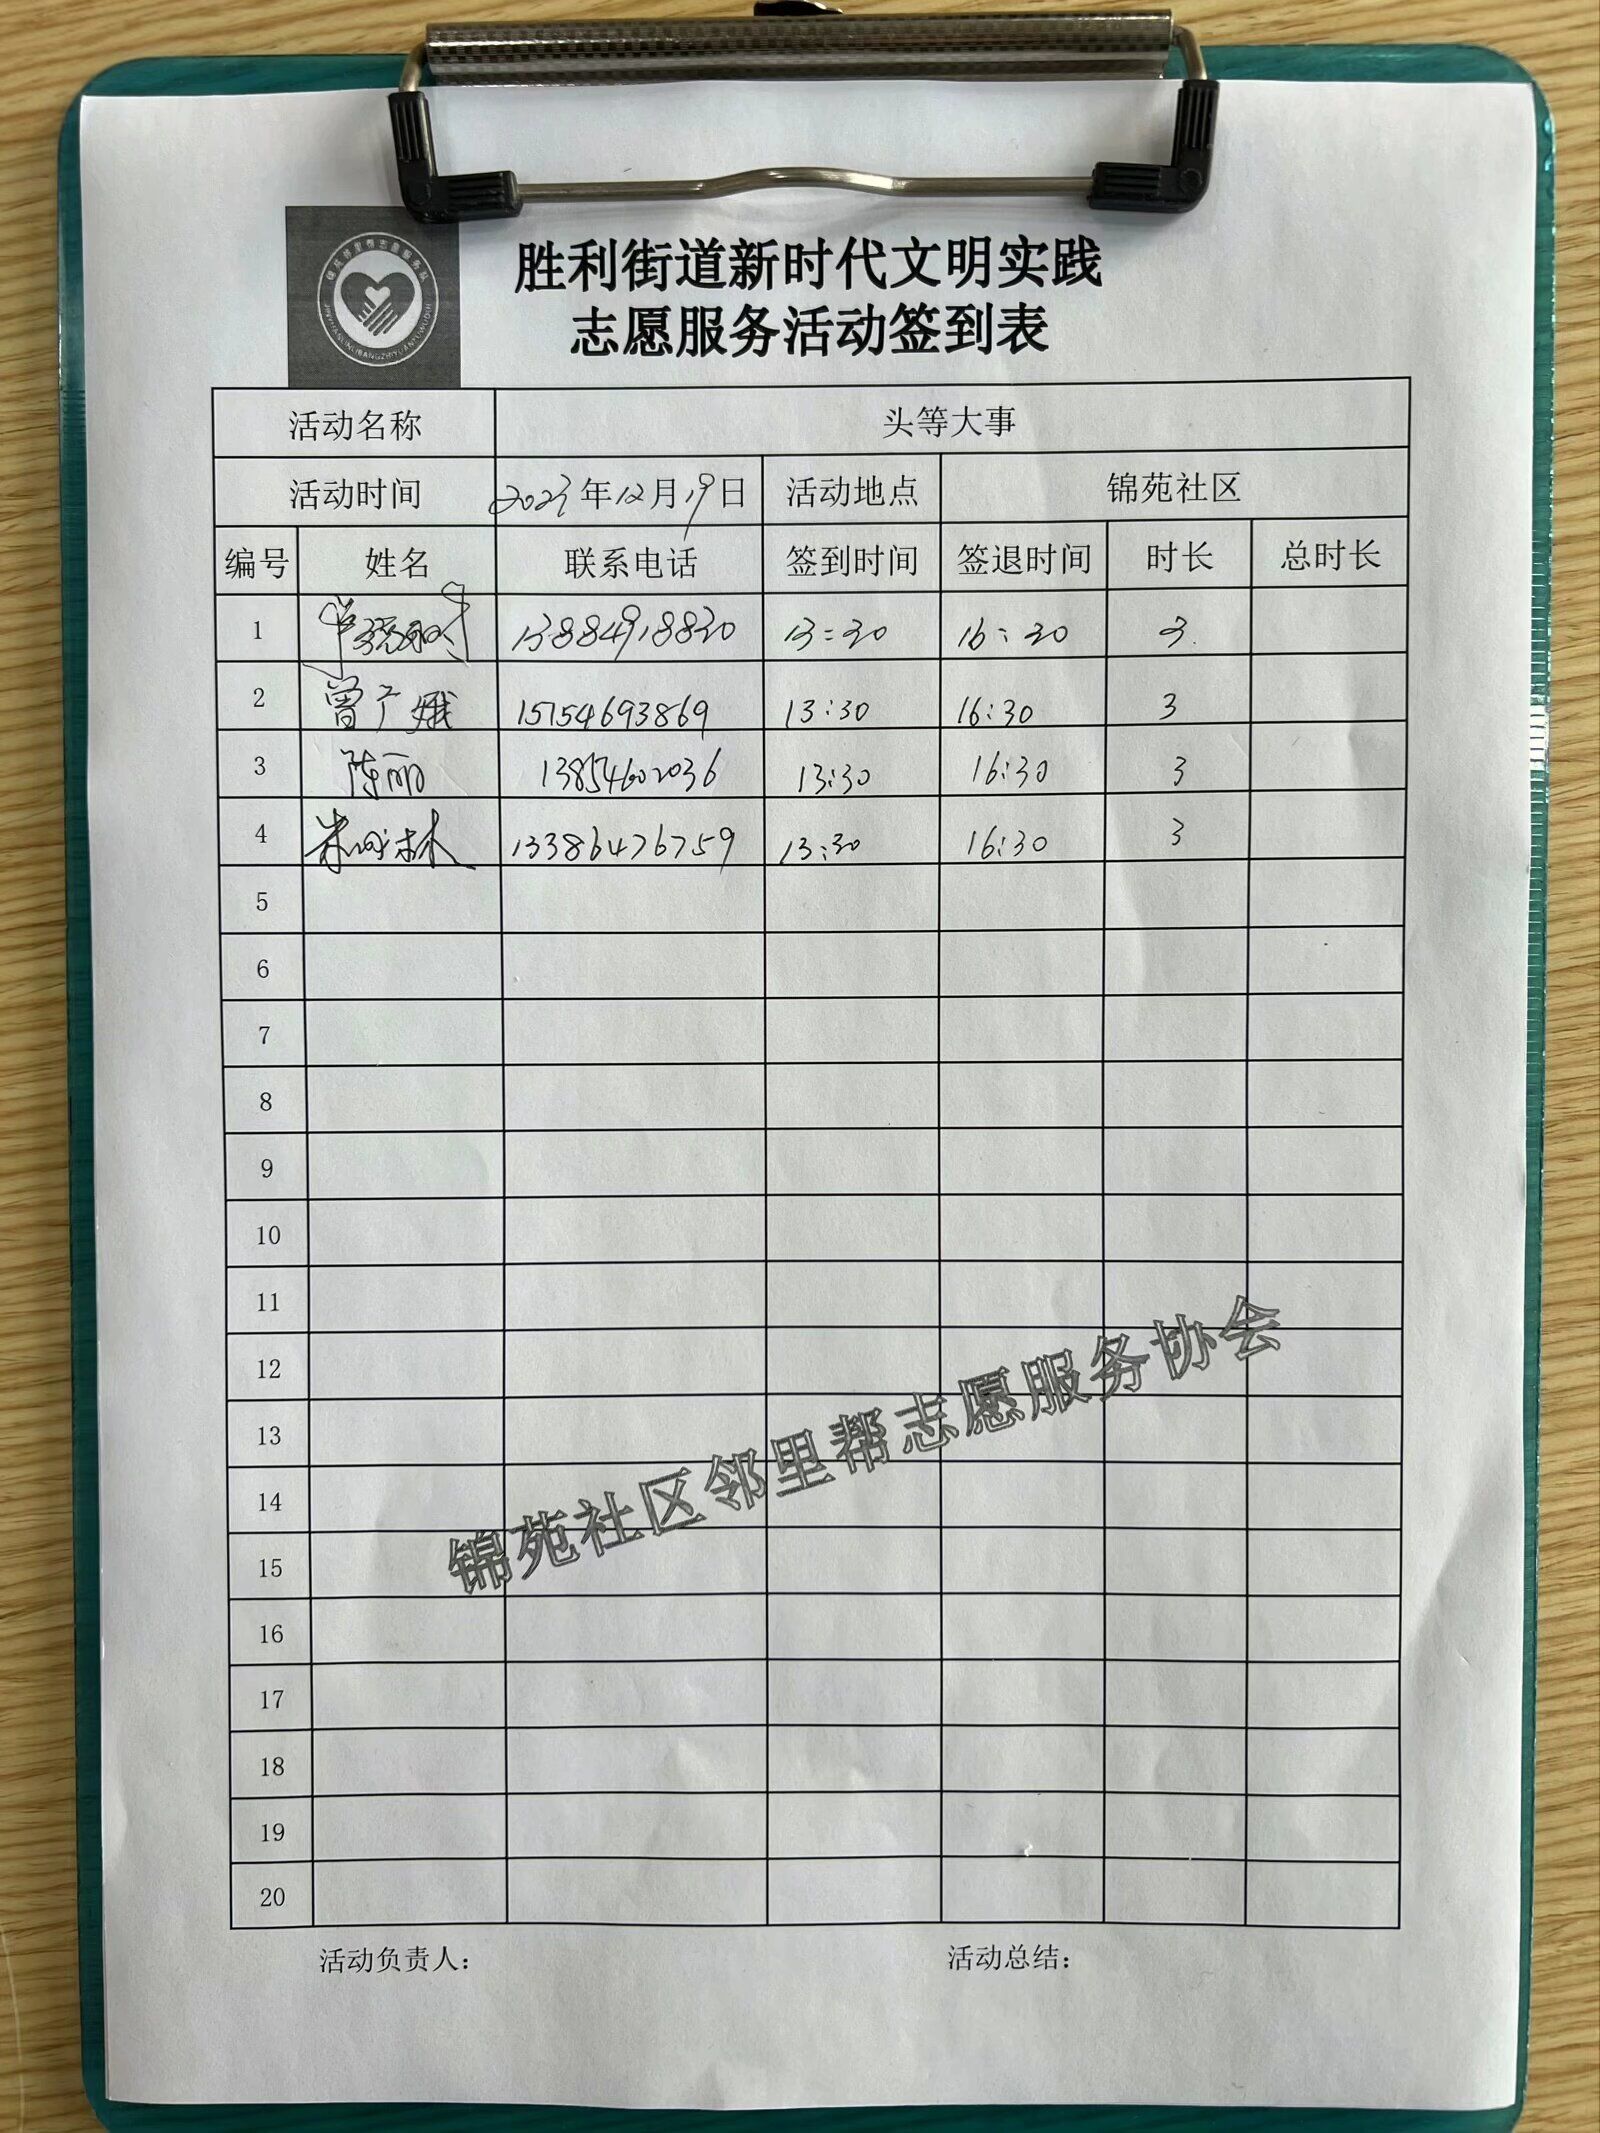 锦苑邻里帮志愿服务队
JINYUANLINLIBANGZHIYUANFUWUDUI
胜利街道新时代文明实践
志愿服务活动签到表
活动名称 头等大事
活动时间 2023年12月19日 活动地点 锦苑社区
编号 姓名 联系电话 签到时间 签退时间 时长 总时长
1 13884918830 13:30 16:30 3
2 曾广娥 15154693869 13:30 16:30 3
3 陈丽 13854602036 13:30 16:30 3
4 13386476759 13:30 16:30 3
5
6
7
8
9
10
11
12
13
14
15
16
17
18
19
20
锦苑社区邻里帮志愿服务协会
活动负责人: 活动总结: